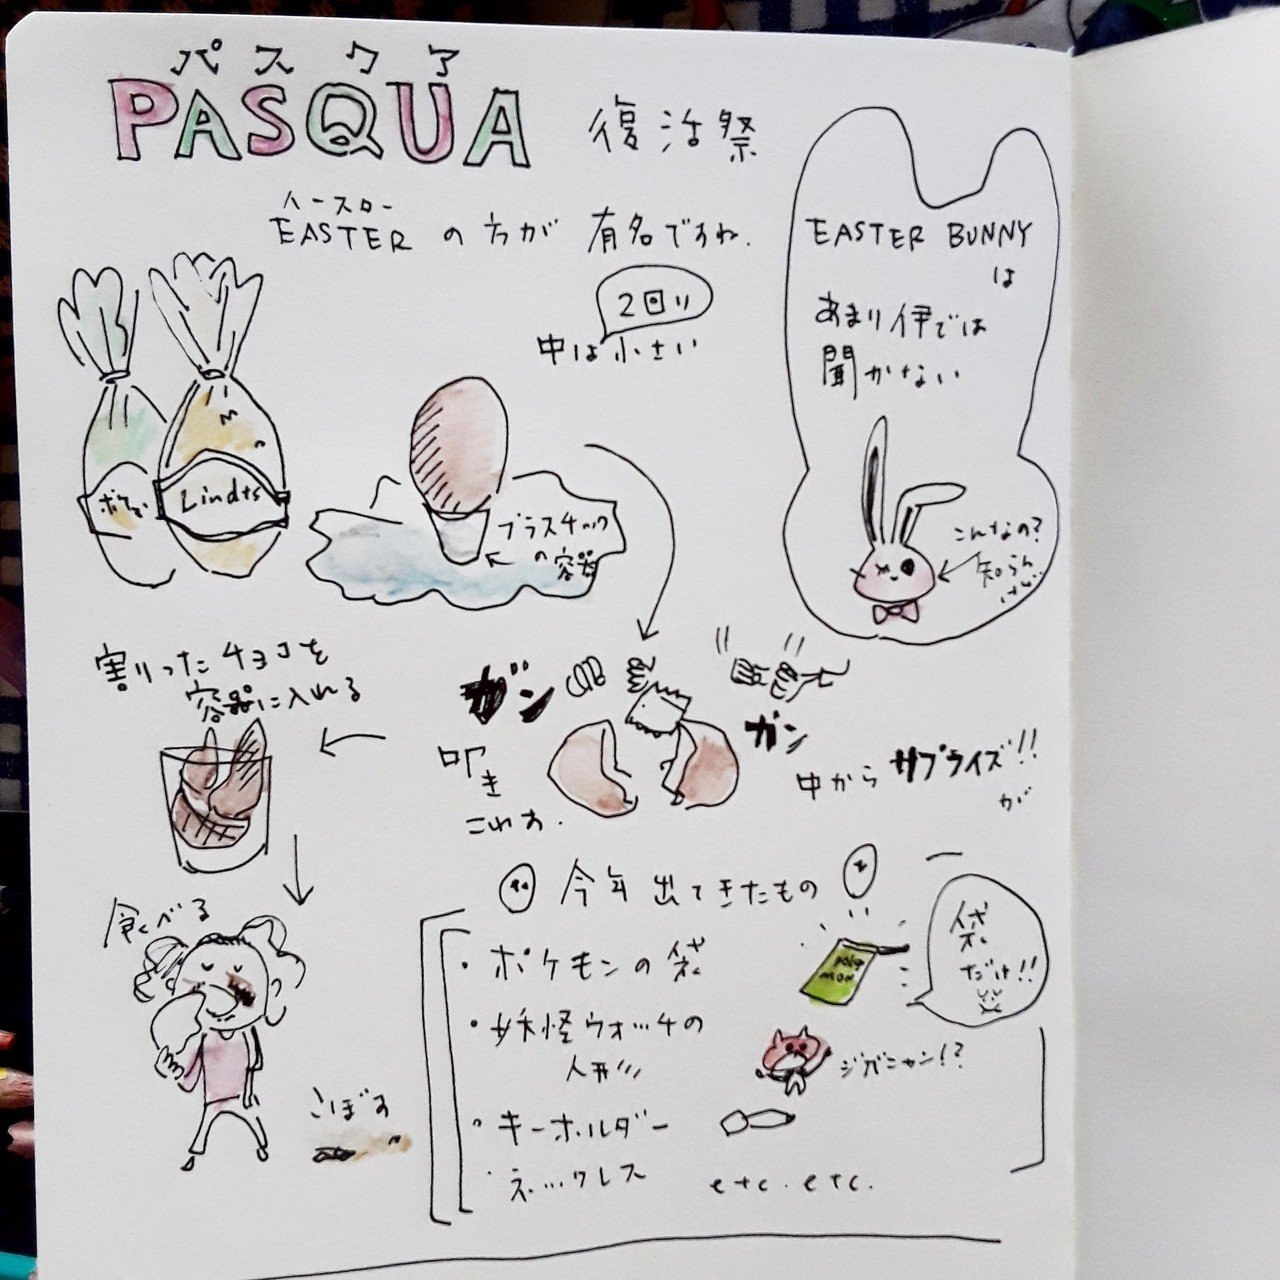 パスクア
PASQUA 復活祭
イースター
EASTER の方が 有名ですね.
2回り
中は小さい
EASTER BUNNY
は
あまり伊では
聞かない
こんなの?
知らん
けど..
Lindts
プラスチック
の容器
割ったチョコを
容器に入れる
ガン
ガン
叩き
こわす.
中から サプライズ!!
が
食べる
こぼす
今年 出てきたもの
・ポケモンの袋
poke
mon
袋
だけ!!
・妖怪ウォッチの
人形
ジバニャン!?
・キーホルダー
・ネックレス etc. etc.